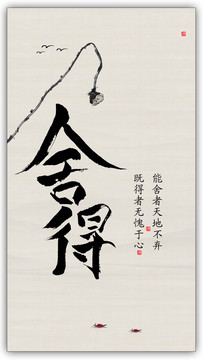 舍得
能舍者天地不弃
既得者无愧于心